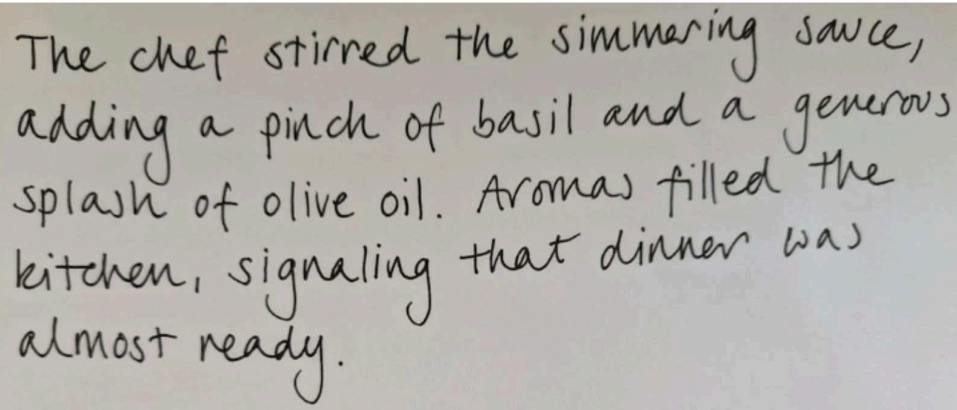 The chef stirred the simmering sauce,
adding a pinch of basil and a generous
splash of olive oil. Aromas filled the
kitchen, signaling that dinner was
almost ready.